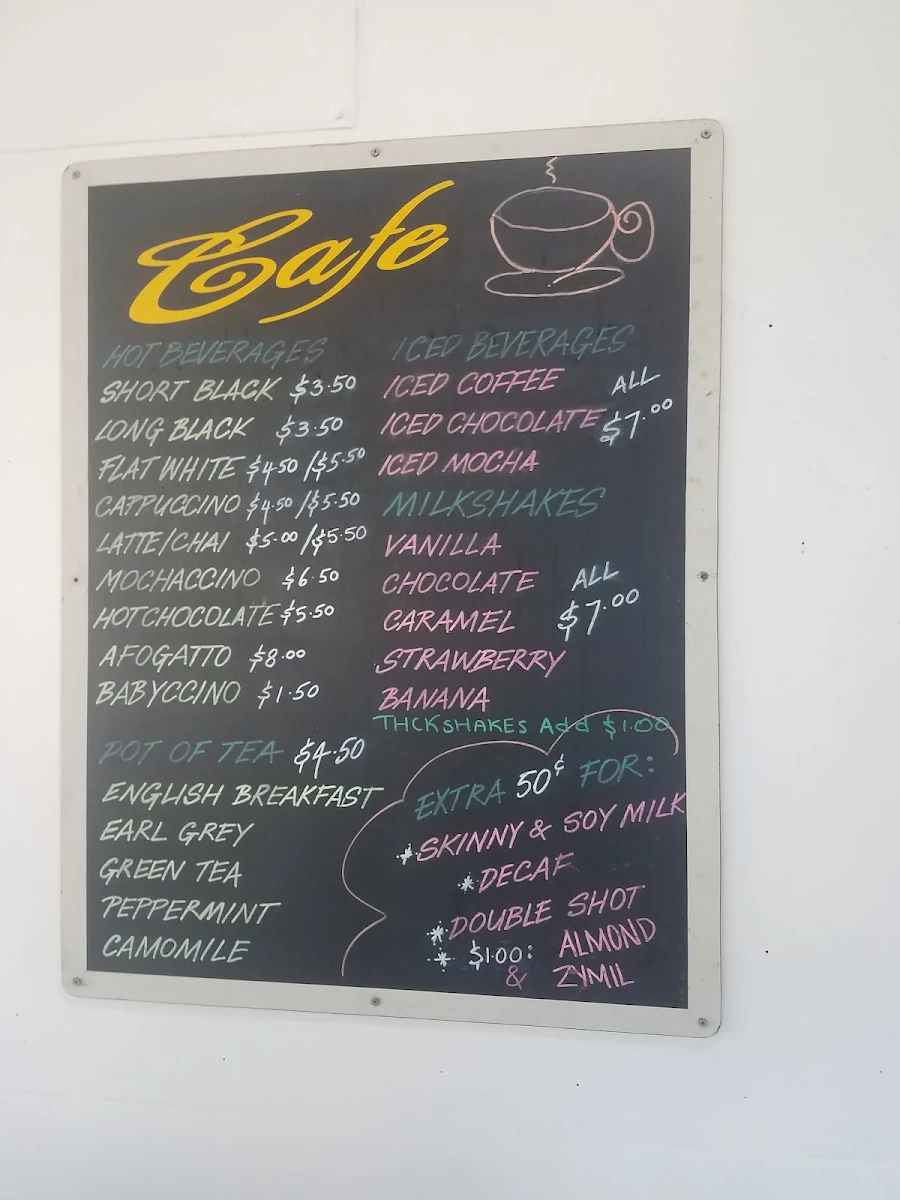 Cafe
HOT BEVERAGES
SHORT BLACK $3.50
LONG BLACK $3.50
FLAT WHITE $4.50 / $5.50
CAPPUCCINO $4.50 / $5.50
LATTE/CHAI $5.00 / $5.50
MOCHACCINO $6.50
HOT CHOCOLATE $5.50
AFOGATTO $8.00
BABYCCINO $1.50
POT OF TEA $4.50
ENGLISH BREAKFAST
EARL GREY
GREEN TEA
PEPPERMINT
CAMOMILE
ICED BEVERAGES
ICED COFFEE
ICED CHOCOLATE
ICED MOCHA
ALL
$7.00
MILKSHAKES
VANILLA
CHOCOLATE
CARAMEL
STRAWBERRY
BANANA
ALL
$7.00
THCKSHAKES Add $1.00
EXTRA 50¢ FOR:
* SKINNY & SOY MILK
* DECAF
* DOUBLE SHOT
* $1.00: ALMOND
& ZYMIL